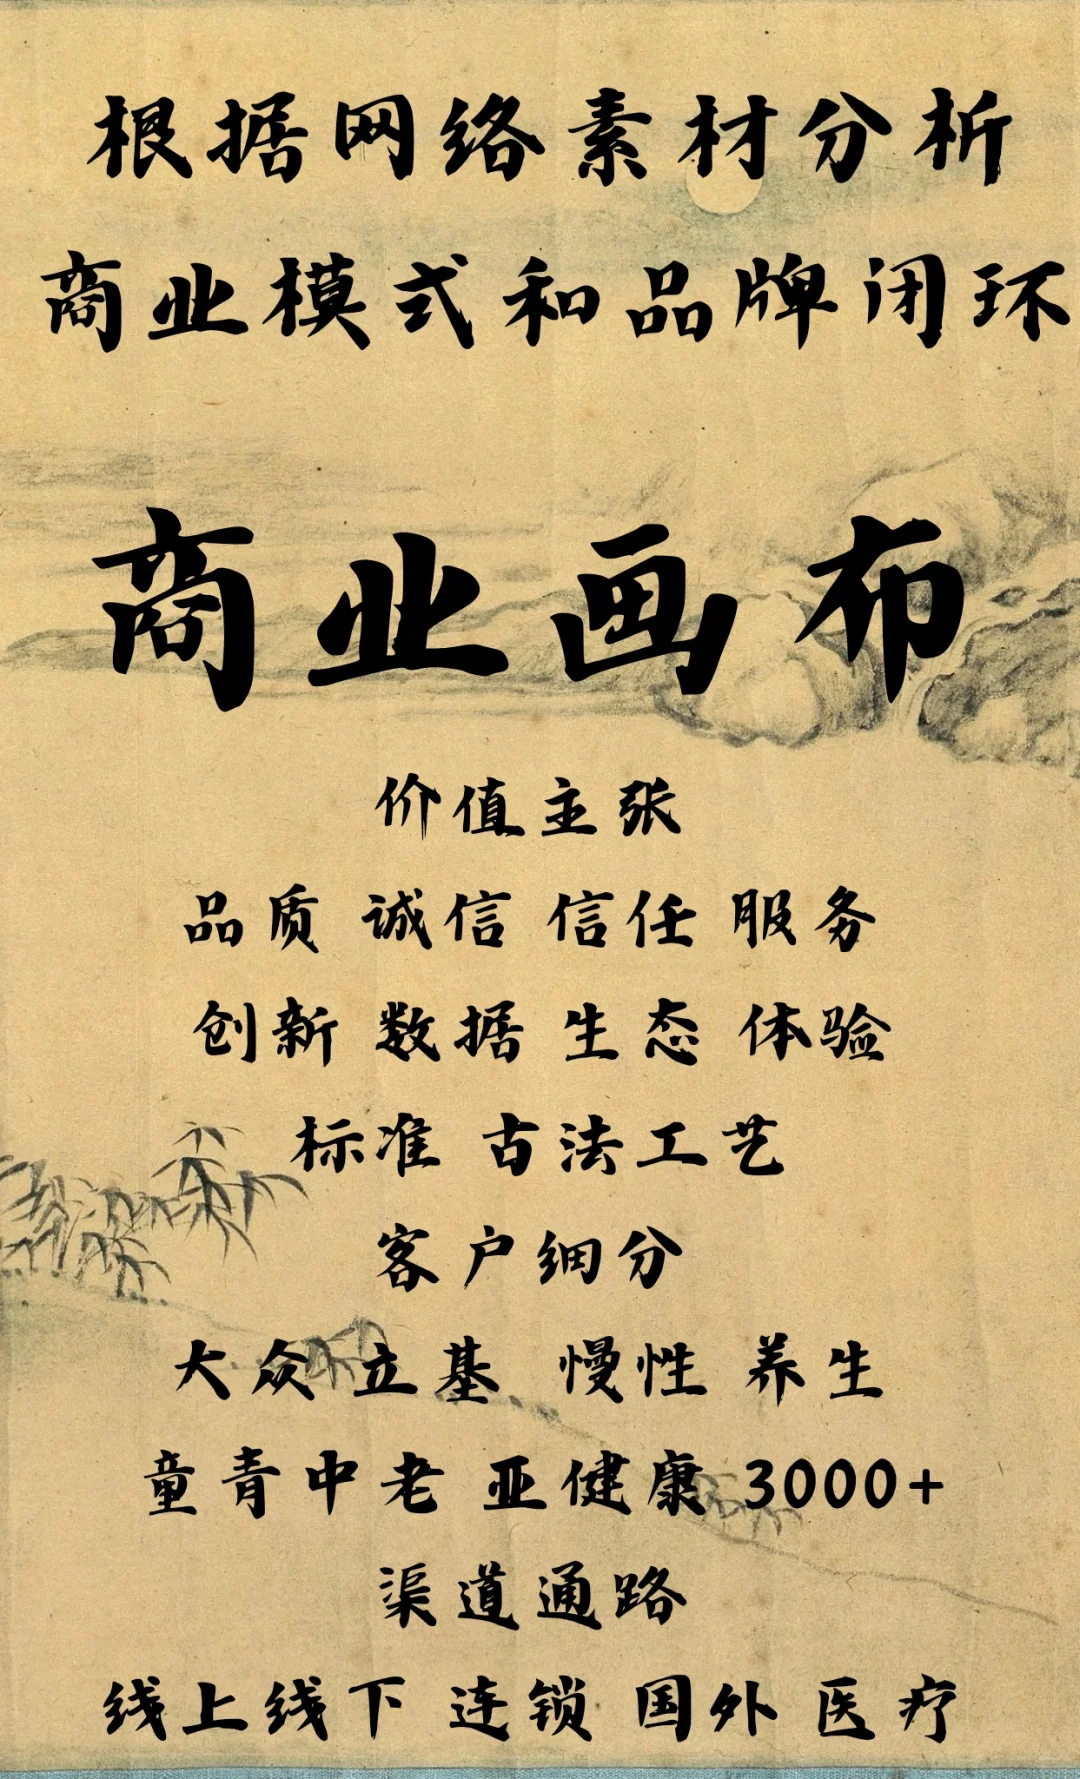 根据网络素材分析
商业模式和品牌闭环
商业画布
价值主张
品质 诚信 信任 服务
创新 数据 生态 体验
标准 古法工艺
客户细分
大众 立基 慢性 养生
童青中老 亚健康 3000+
渠道通路
线上线下 连锁 国外 医疗